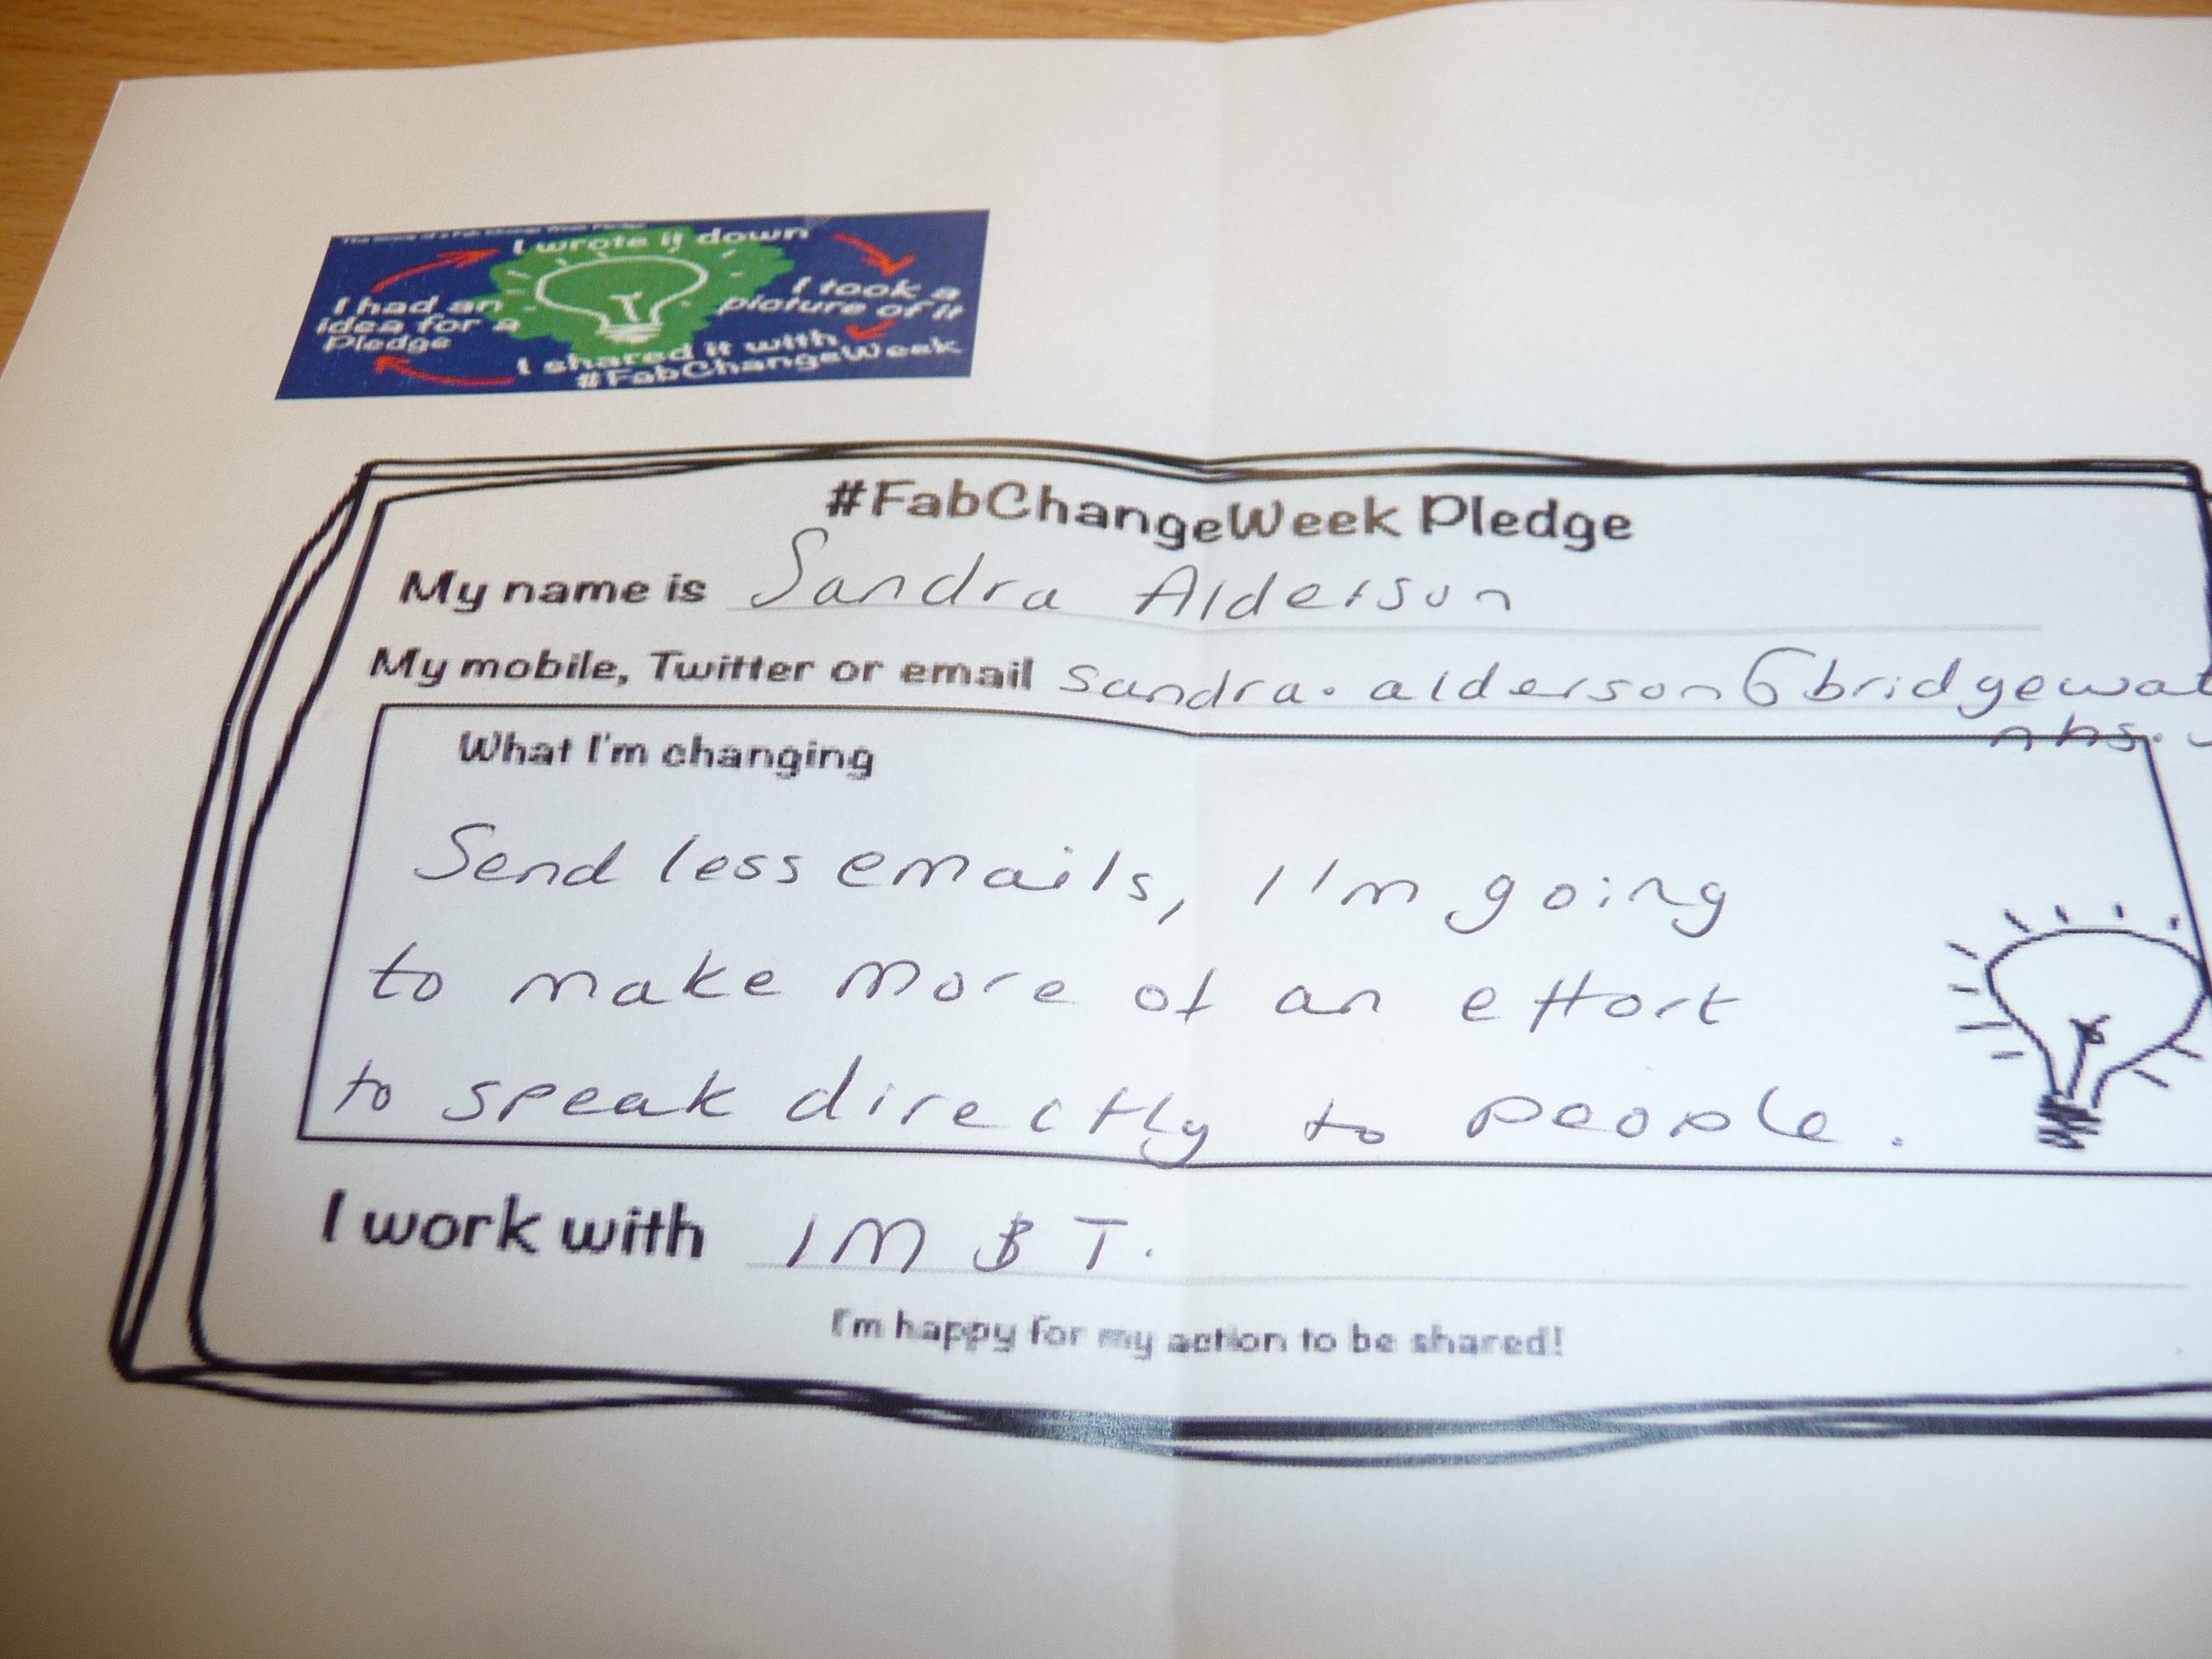 I wrote it down
I took a
picture of it
I shared it with
#FabChangeWeek
I had an
idea for a
Pledge
#FabChangeWeek Pledge
My name is Sandra Alderson
My mobile, Twitter or email sandra.alderson@bridgewat
nhs.
What I'm changing
Send less emails, I'm going
to make more of an effort
to speak directly to people.
I work with IM & T.
I'm happy for my action to be shared!